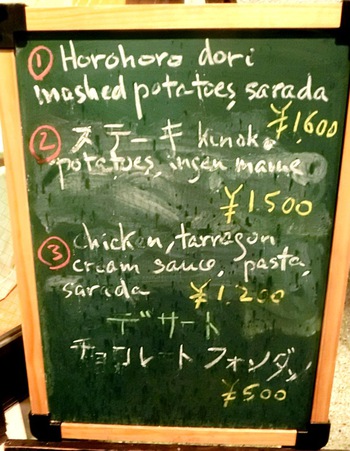 ① Horohoro dori
mashed potatoes, sarada
¥1,600
② ステーキ kinoko
potatoes, ingen mame
¥1500
③ chicken, tarragon
cream sauce, pasta,
sarada ¥1,200
デザート
チョコレートフォンダン
¥500